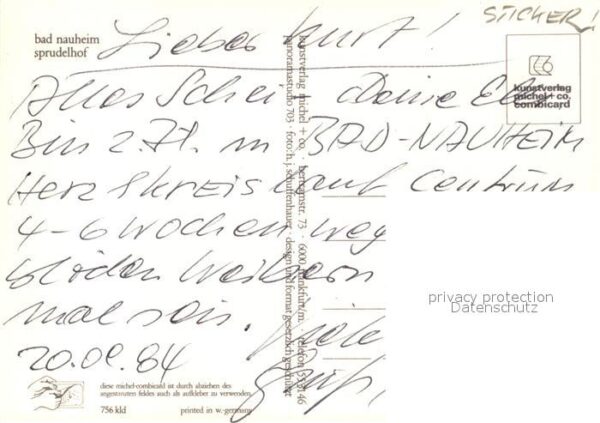 STICKER!
bad nauheim
sprudelhof
Lieber Kurt!
Alles Deine
Bin z. Zt. in BAD-NAUHEIM
Herz Kreislauf Centrum
4-6 Wochen weg
blöden Weibern
mal sein. Viele
20.01.84 Grüße
kunstverlag
michel + co.
combicard
kunstverlag michel + co. · 73 · 6000 frankfurt/m. · telefon 555146
panoramastudio 703 · foto: h. j. schuffenhauer · design und format gesetzlich geschützt
privacy protection
Datenschutz
diese michel-combicard ist durch abziehen des
angestanzten feldes auch als aufkleber zu verwenden.
756 kld
printed in w.-germany